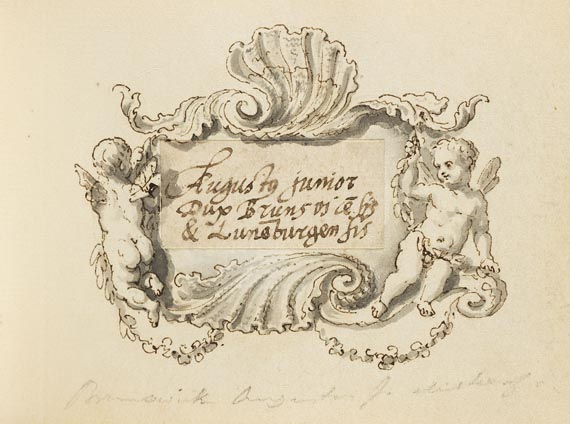 Augustꝰ junior
Dux Brunsvicēsis
& Luneburgensis
Brunswick Augustus